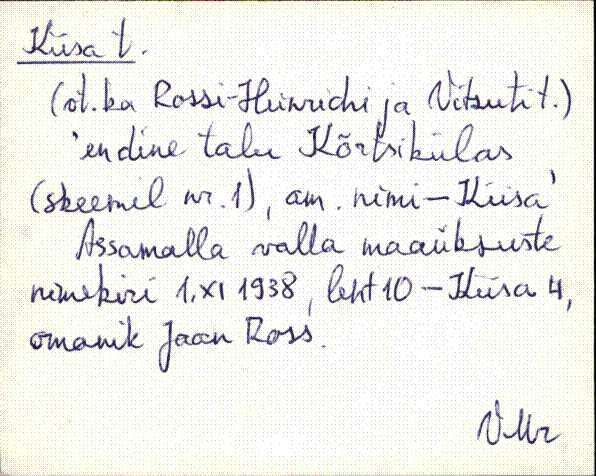 Kiisa t.
(vt. ka Rossi-Heinrichi ja Vitsuti t.)
'endine talu Kõrtsikülas
(skeemil nr. 1), am. nimi – Kiisa'
Assamalla valla maaüksuste
nimekiri 1.XI 1938, leht 10 – Kiisa 4,
omanik Jaan Ross.
VMr